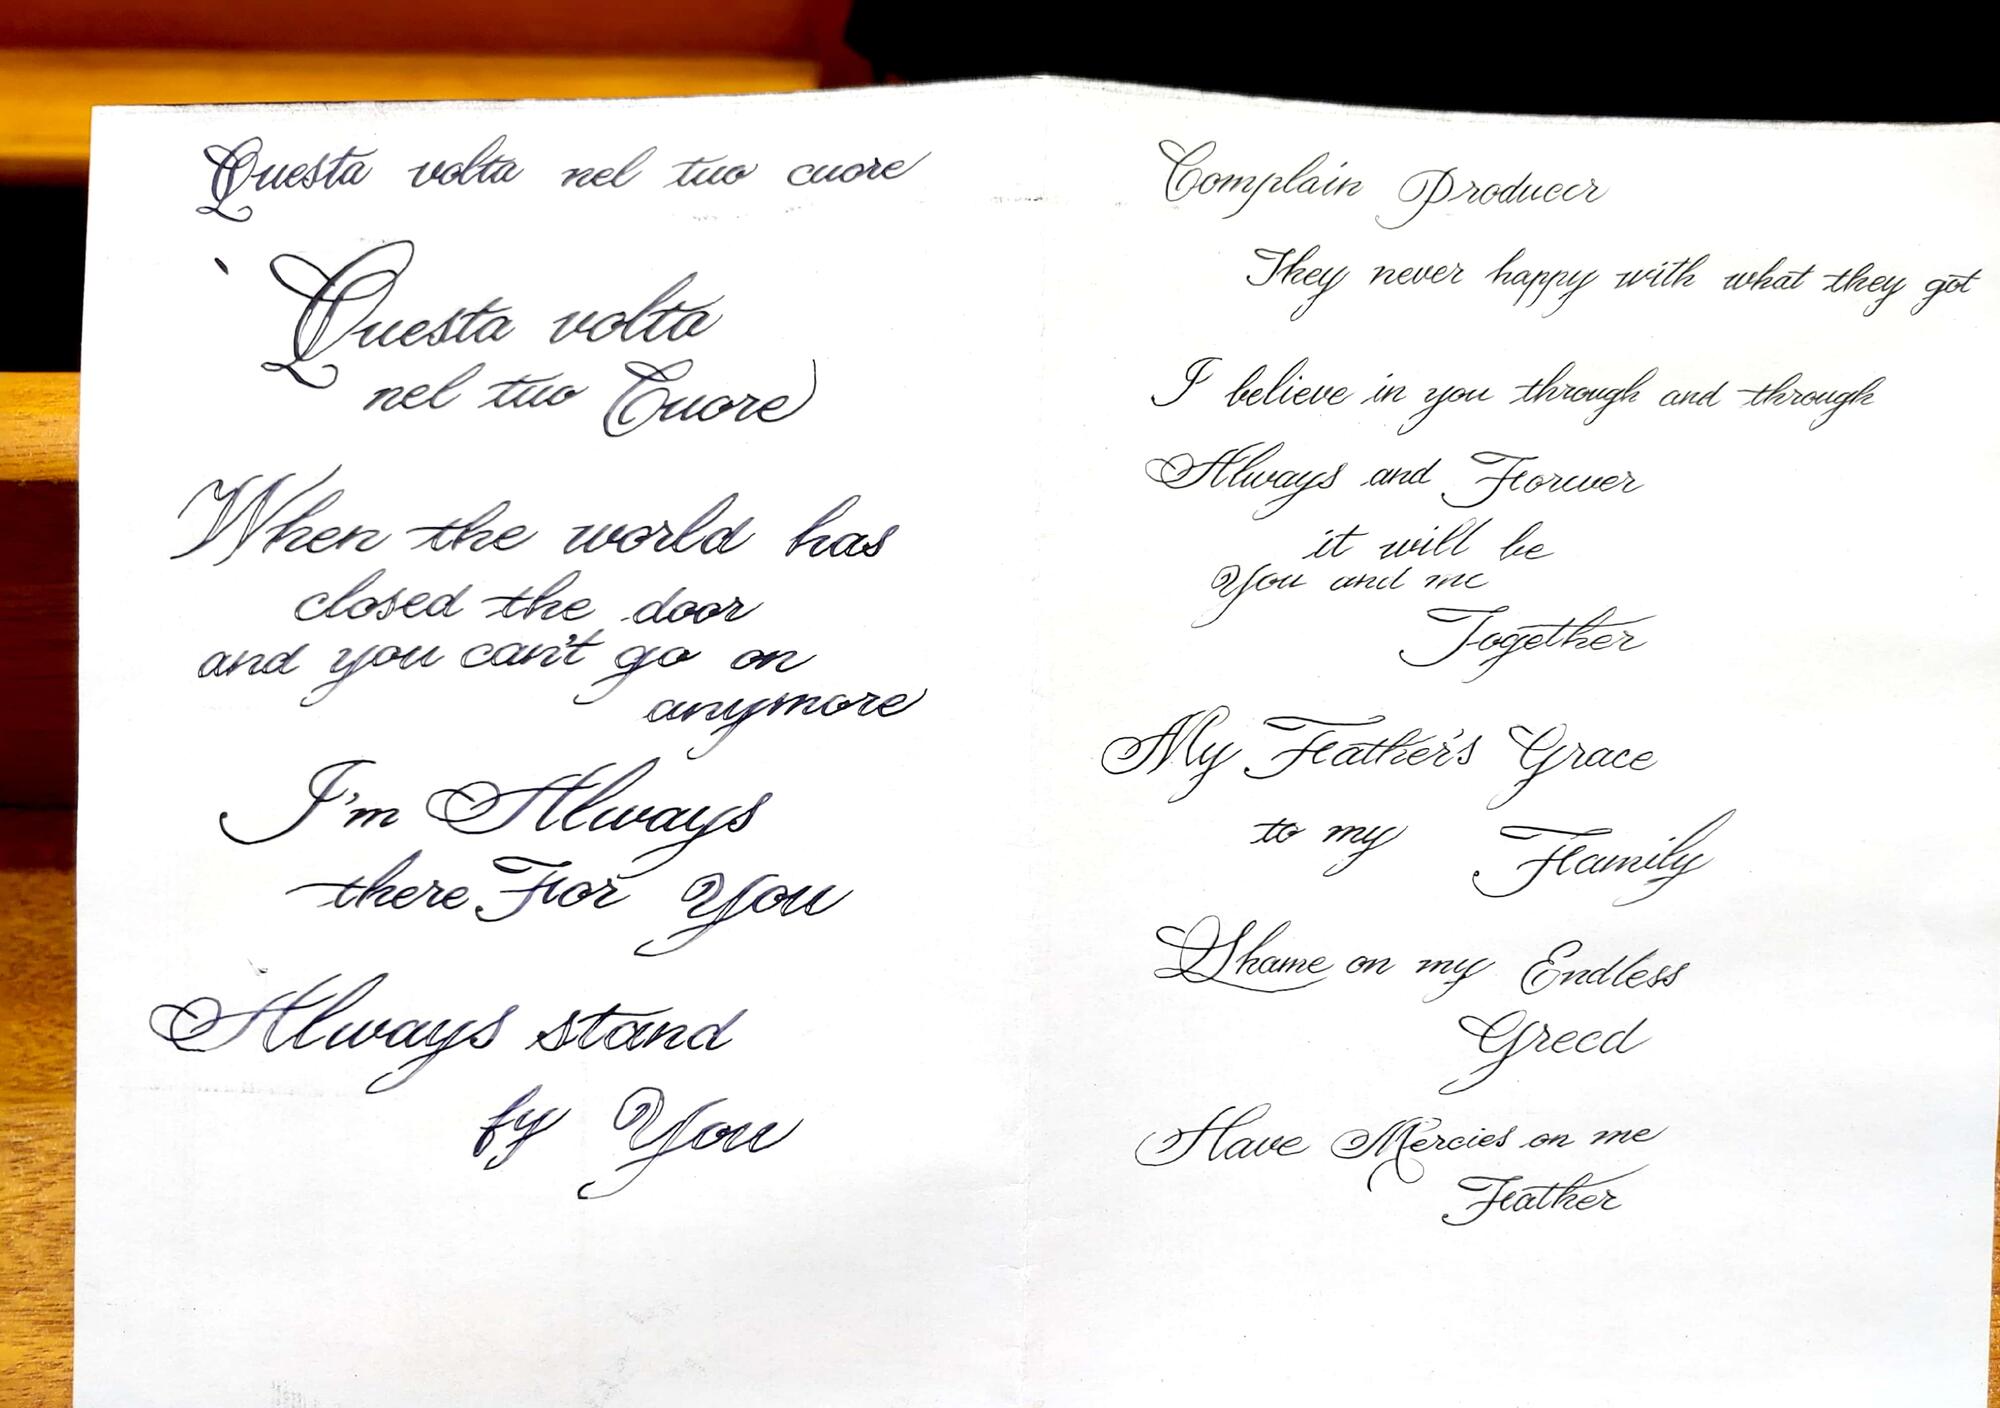 Questa volta nel tuo cuore
Questa volta
nel tuo Cuore
When the world has
closed the door
and you can't go on
anymore
I'm Always
there For You
Always stand
by You
Complain Producer
They never happy with what they got
I believe in you through and through
Always and Forever
it will be
You and me
Together
My Father's Grace
to my Family
Shame on my Endless
Greed
Have Mercies on me
Father